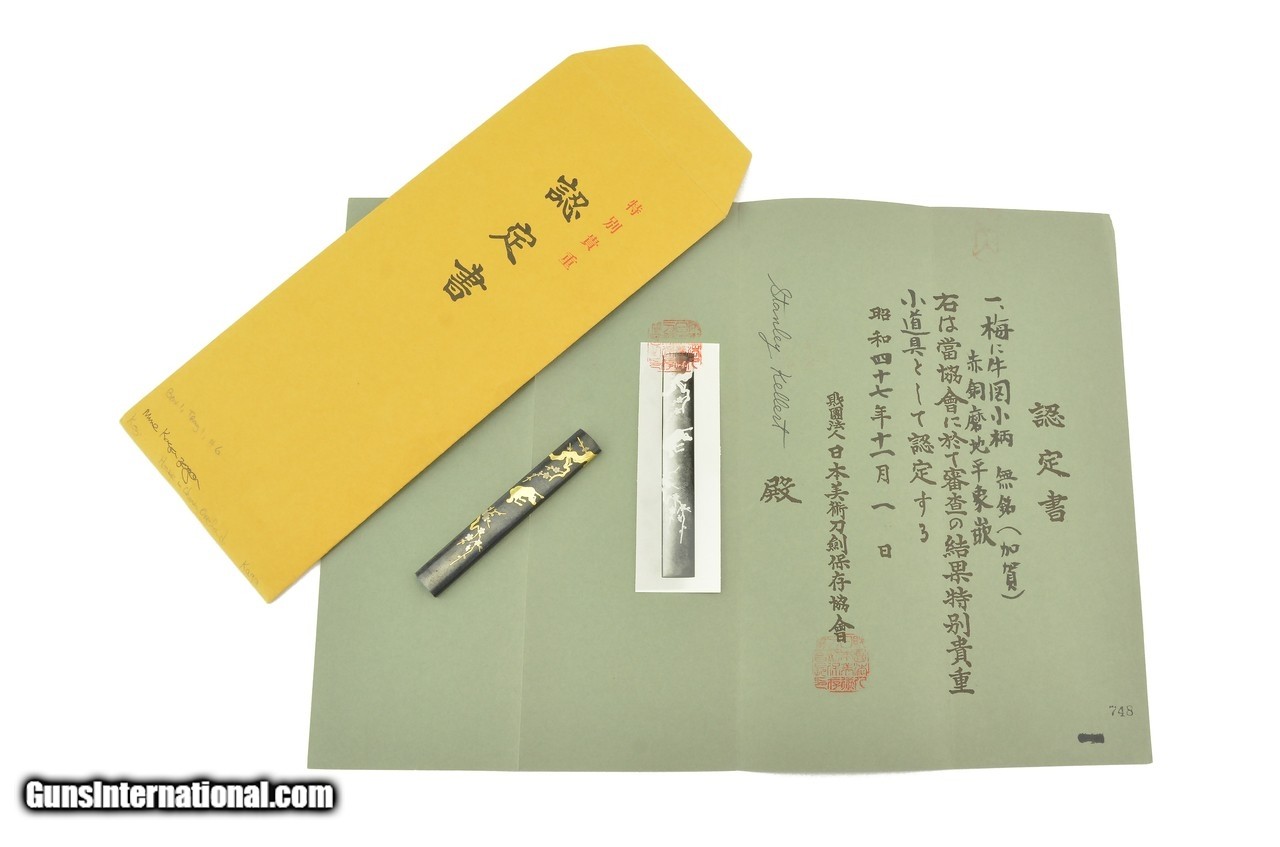 特別貴重
認定書
認定書
一、梅に牛図小柄 無銘(加賀)
赤銅磨地平象嵌
右は當協會に於て審査の結果特别貴重
小道具として認定する
昭和四十七年十一月一日
財團法人日本美術刀劍保存協會
Stanley Kellert
殿
748
GunsInternational.com